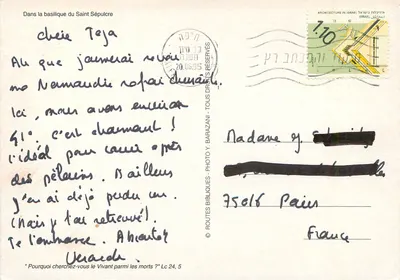 Dans la basilique du Saint Sépulcre
Chère Teja
Ah que j'aimerai revoir
ma Normandie rafraîchissante.
Ici, nous avons environ
41°. C'est charmant !
l'idéal pour courir après
des pèlerins. D'ailleurs
j'en ai déjà perdu un.
(Mais y l'ai retrouvé).
Je t'embrasse. A bientôt
"Pourquoi cherchez-vous le Vivant parmi les morts ?" Lc 24, 5
© ROUTES BIBLIQUES - PHOTO Y. BARAZANI - TOUS DROITS RÉSERVÉS
1.10
Madame
75016 Paris
France